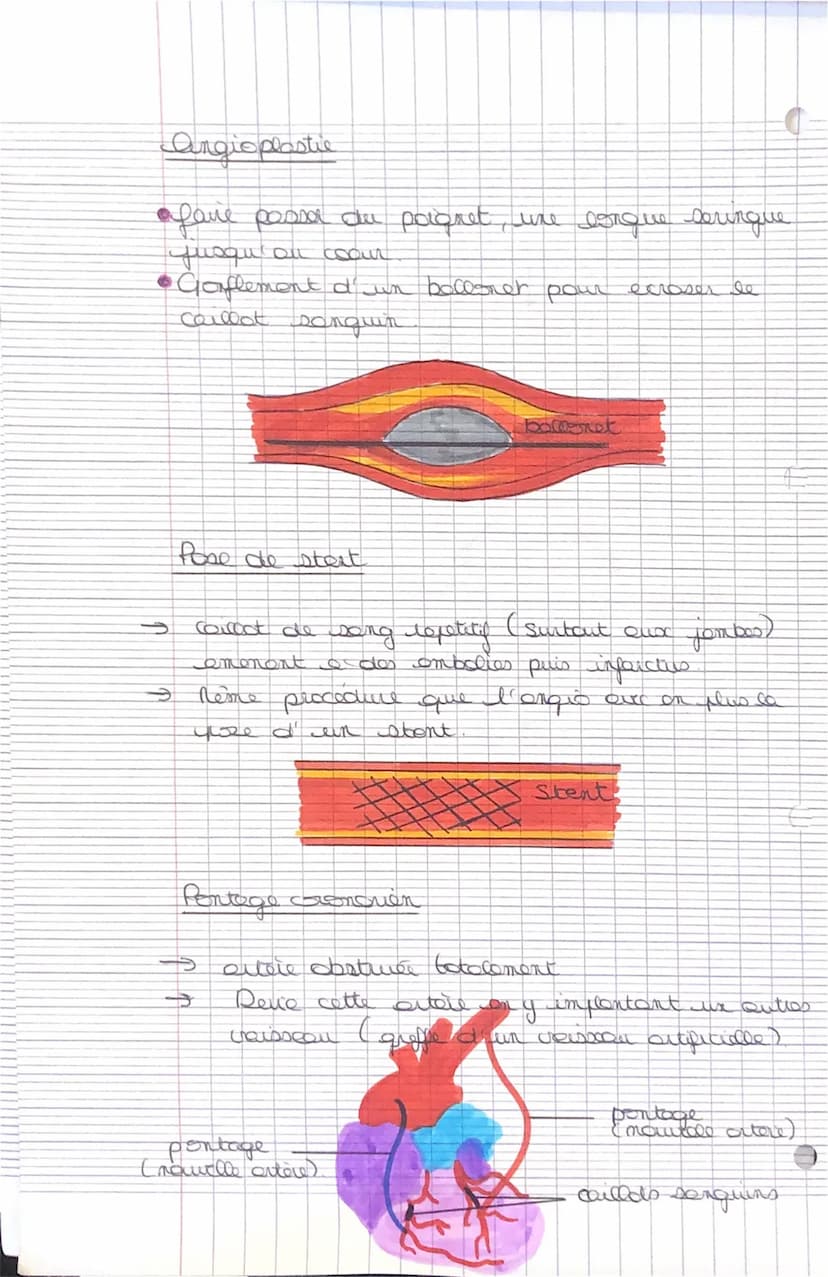 Angioplastie
faire passer du poignet, une longue seringue
jusqu'au coeur.
Gonflement d'un ballonet pour ecraser le
caillot sanguin.
ballonet
Pose de stent
→ caillot de sang répétitif (surtout aux jambes)
amenant a des embolies puis infarctus.
→ Même procédure que l'angio avec en plus la
pose d'un stent.
Stent
Pontage coronarien
→ artère obstruée totalement
→ cette artère en y implantant un autres
vaisseau (greffe d'un vaisseau artificielle)
pontage
(nouvelle artère)
pontage
(nouvelle artère)
caillots sanguins